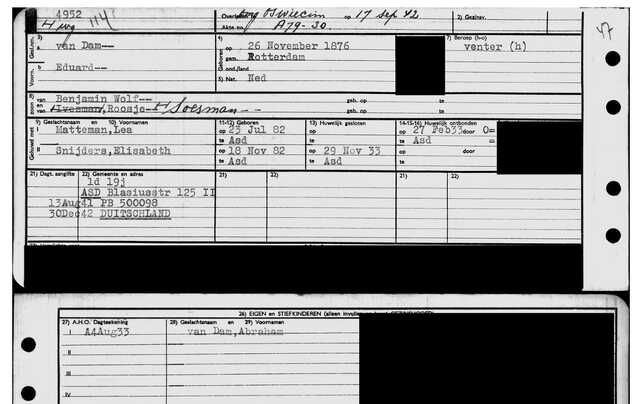 4952
4 wg 114
Overleden Oswiecim op 17 sep 42
Akte no. A79-30.
2) Gezinsv.
3)
van Dam--
4)
op 26 November 1876
gem. Rotterdam
7) Beroep (h-o)
venter (h)
Geboren
Gesl.n.
Voorn.
Eduard--
gond./land
5) Nat. Ned
8) van Benjamin Wolf-- geb. op te
en van Iversman, Roosje Soesman-- geb. op te
zoon
9) Geslachtsnaam en 10) Voornamen
11-12) Geboren
13) Huwelijk gesloten
14-15-16) Huwelijk ontbonden
Gehuwd met
I Matteman, Lea op 23 Jul 82 op op 27 Feb33 door O=
te Asd te te Asd =
II Snijders, Elisabeth op 18 Nov 82 op 29 Nov 33 op door
te Asd te Asd te
21) Dagt. aangifte 22) Gemeente en adres 21) 22) 21) 22)
1d 19j
ASD Blasiusstr 125 II
13Aug41 PB 500098
30Dec42 DUITSCHLAND
26) EIGEN en STIEFKINDEREN (alleen
27) A.H.O. Dagteekening
28) Geslachtsnaam en 29) Voornamen
I A4Aug33 van Dam, Abraham
II
III
IV